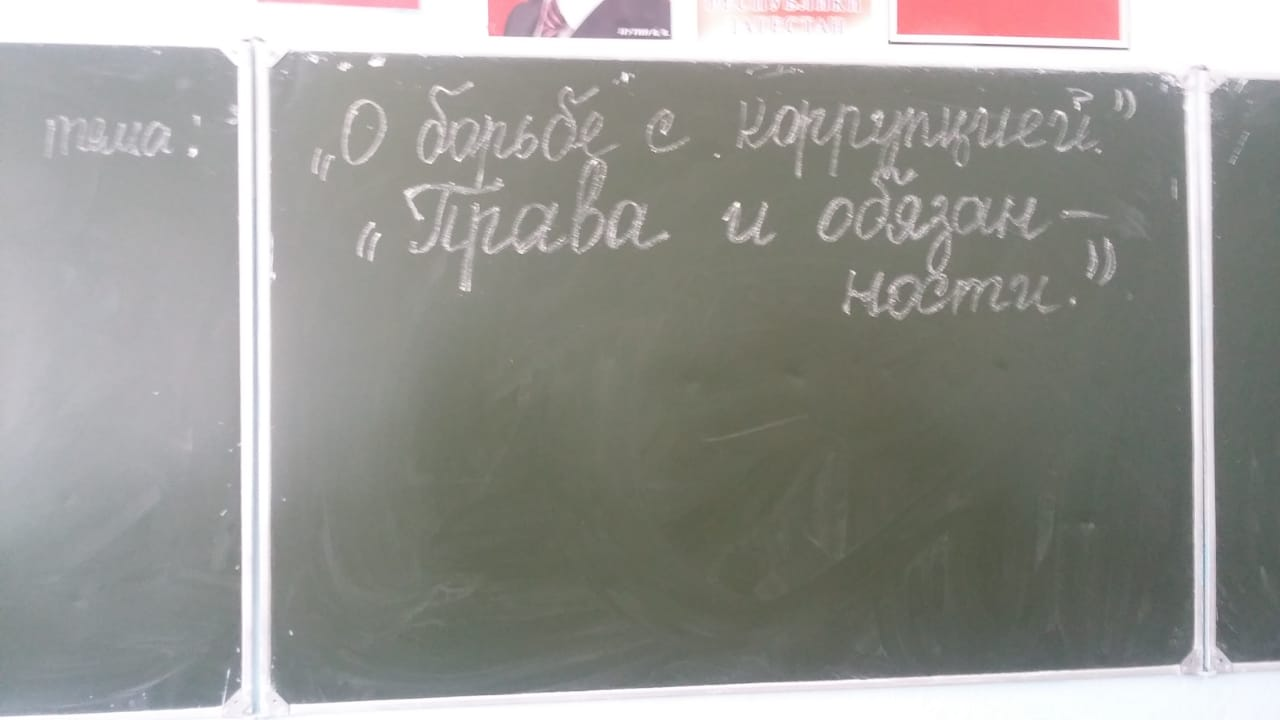 РЕСПУБЛИКИ
ДАГЕСТАН
тема: „О борьбе с коррупцией.”
„Права и обязан-
ности.”